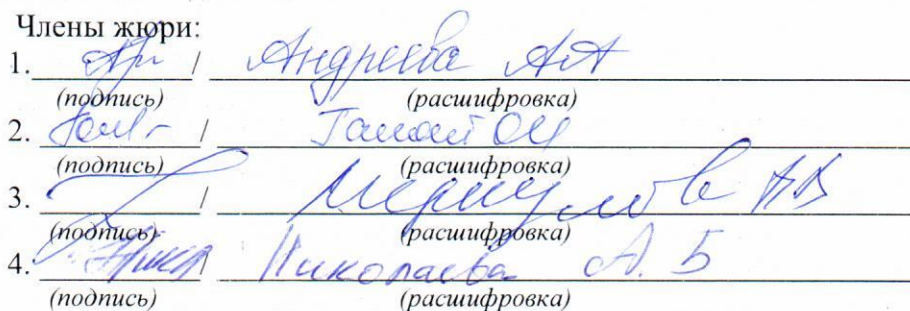 Члены жюри:
1. / Андреева А А
(подпись) (расшифровка)
2. /
(подпись) (расшифровка)
3. / Меркулов АВ
(подпись) (расшифровка)
4. / Николаева А. Б
(подпись) (расшифровка)